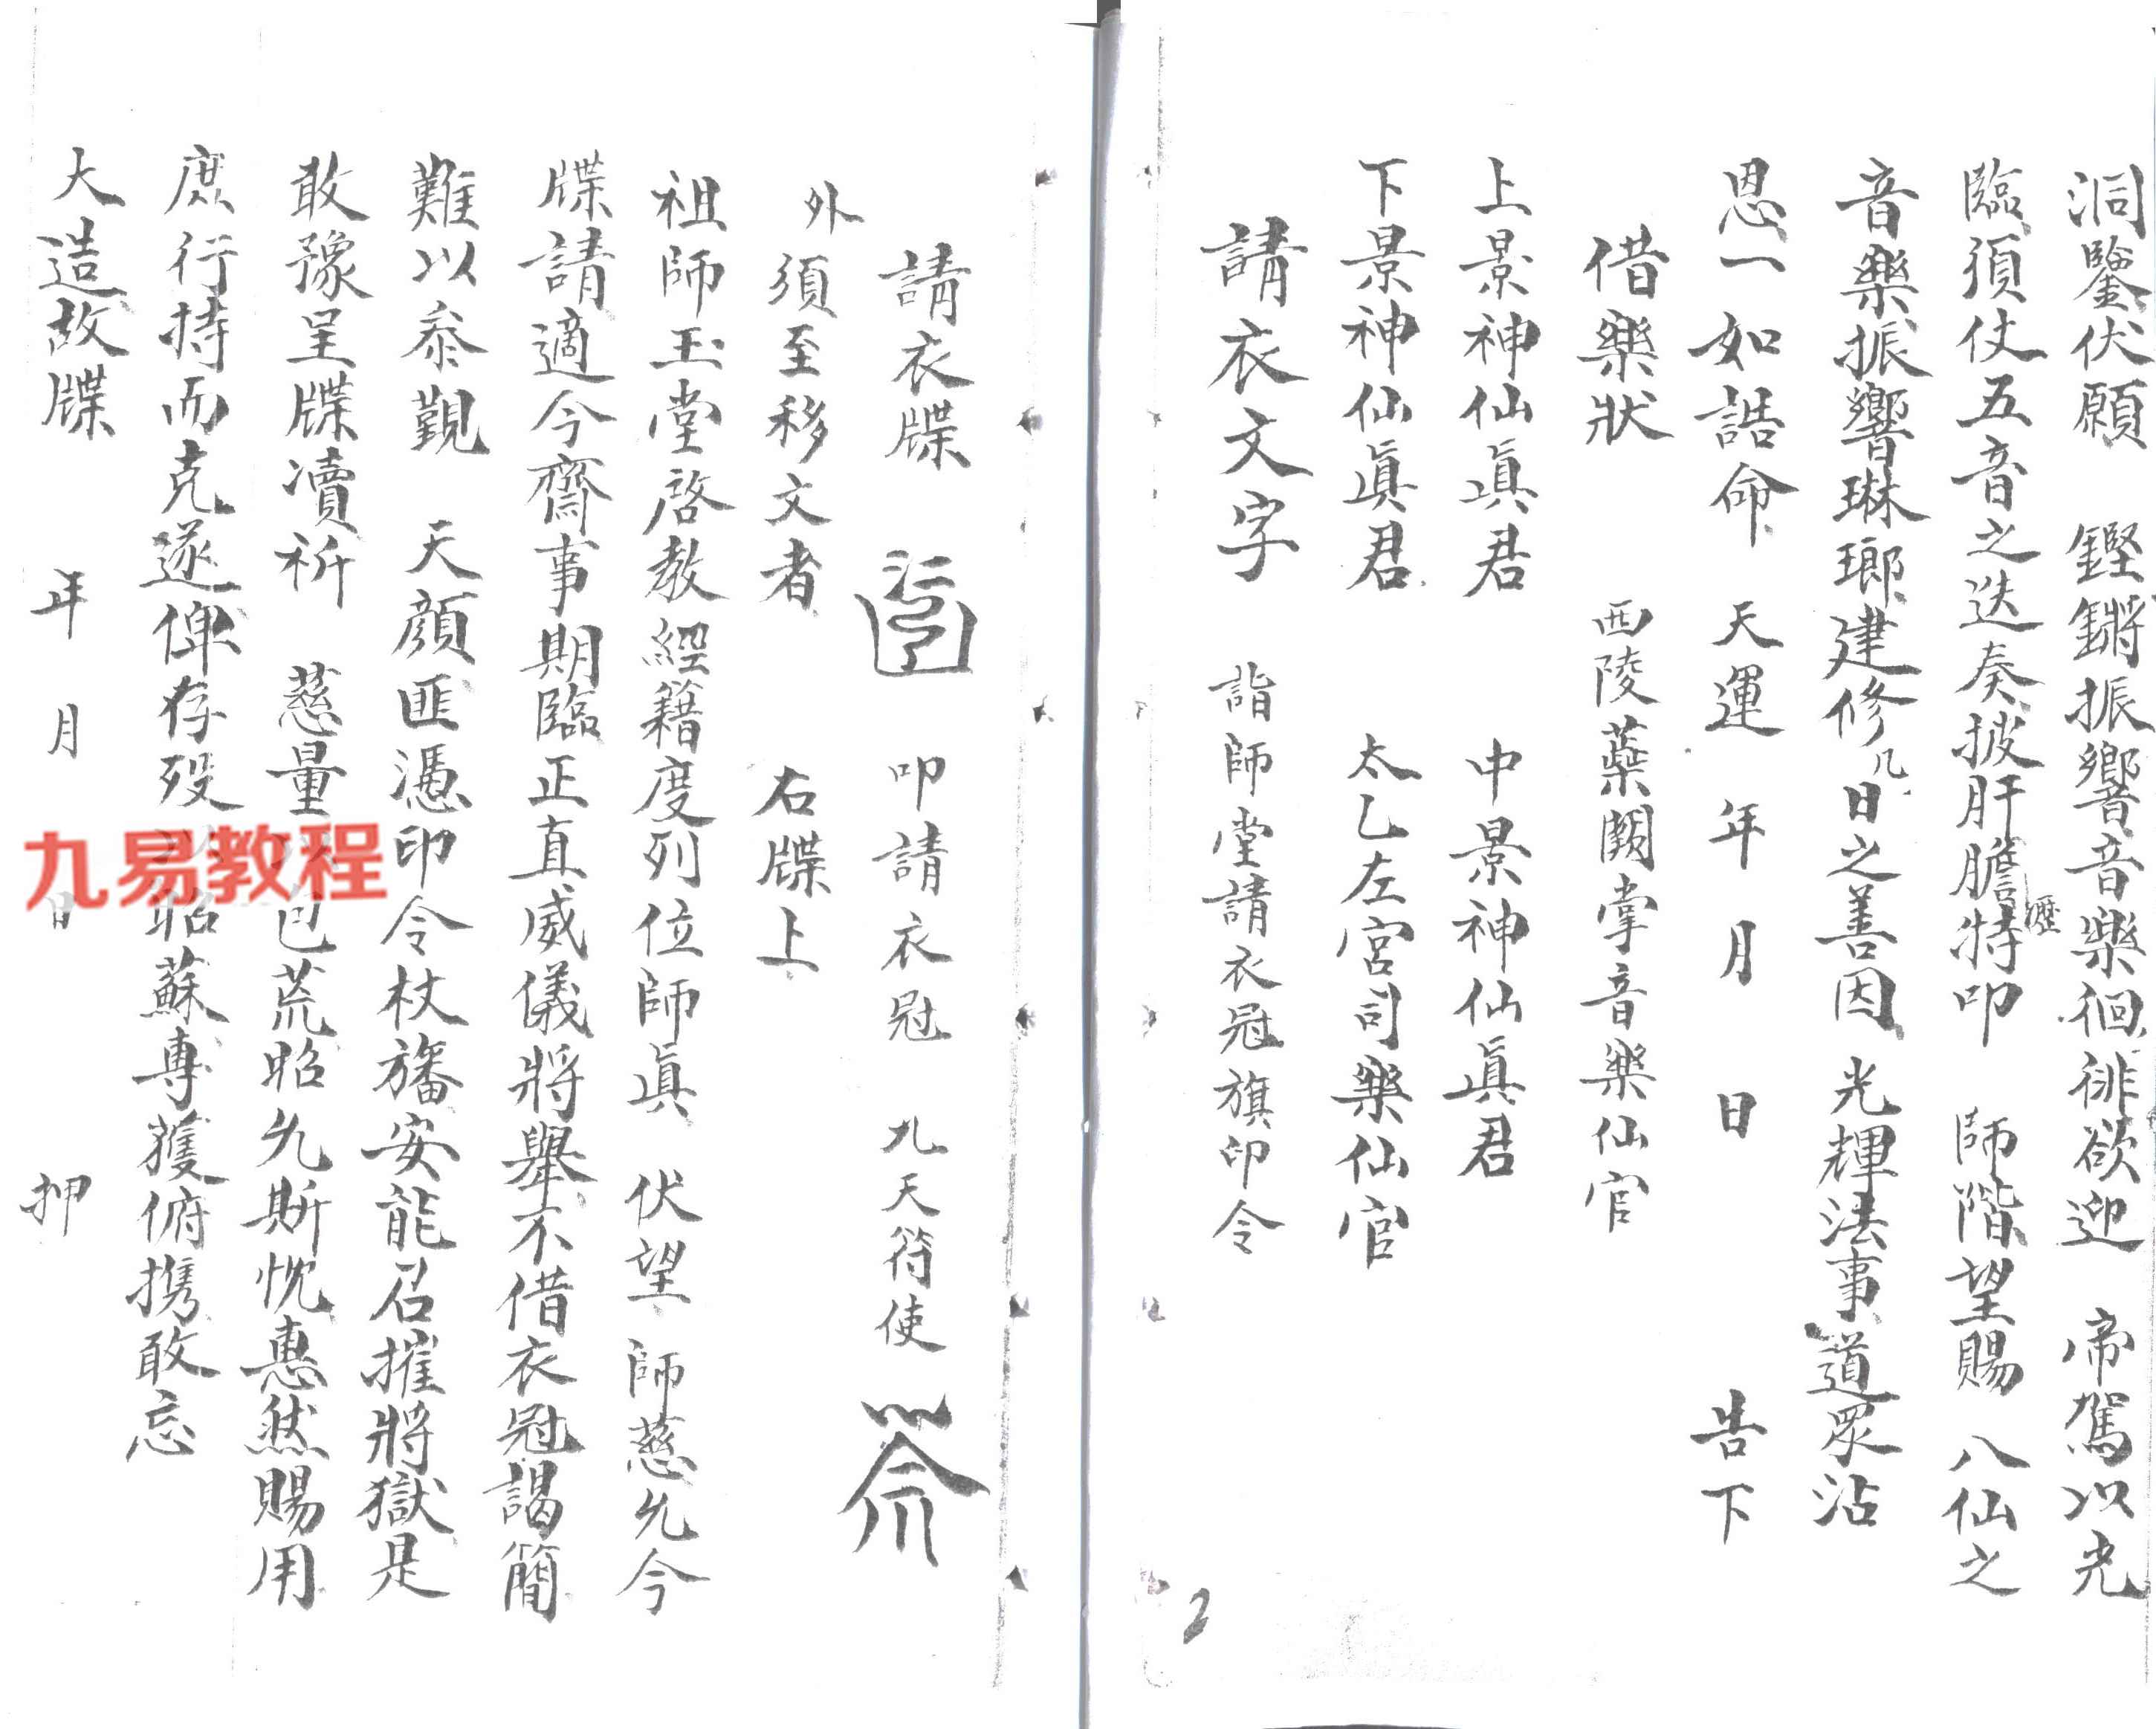 洞鑒伏願 鏗鏘振響音樂徊徘欲迎 帝駕以光
臨須仗五音之迭奏披肝膽瀝特叩 師階望賜 八仙之
音樂振響琳瑯建修几日之善因 光輝法事道眾沾
恩一如誥命 天運 年 月 日 告下
借樂狀 西陵蘂闕掌音樂仙官
上景神仙眞君 中景神仙眞君
下景神仙眞君 太乙左宮司樂仙官
請衣文字 詣師堂請衣冠旗印令
2
請衣牒 叩請衣冠 九天符使
外須至移文者 右牒上
祖師玉堂啓教經籍度列位師眞 伏望 師慈允今
牒請適今齋事期臨正直威儀將舉不借衣冠謁簡
難以叅觐 天顔匪憑印令杖旛安能召摧將獄是
敢豫呈牒凟祈 慈量 包荒昭允斯忱惠然賜用
庶行持而克遂俾存殁 昭蘇專蒦俯擕敢忘
大造故牒 年 月 日 押
九易教程